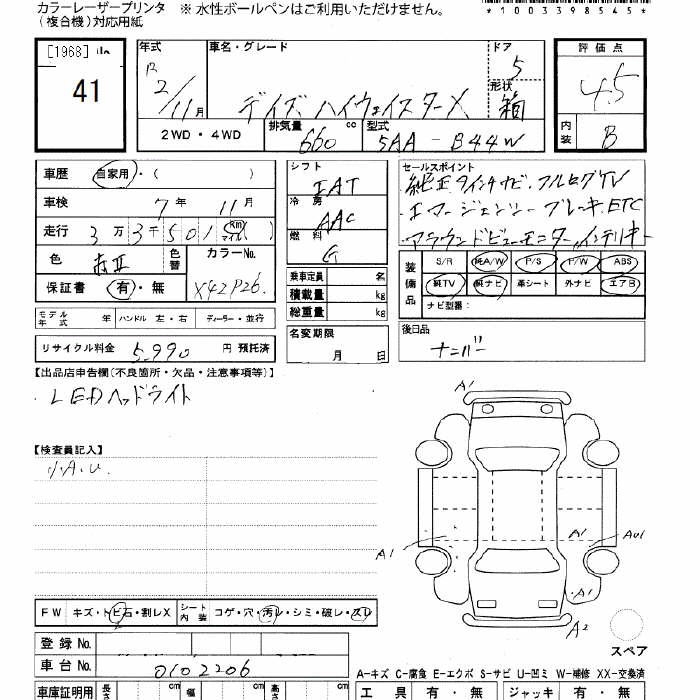 カラーレーザープリンタ ※ 水性ボールペンはご利用いただけません。
(複合機)対応用紙
*1003898545*
[1968]
41
年式 車名・グレード ドア 評価点
R 2/11月 デイズ ハイウェイスターX 5 4.5
形状 箱
2WD・4WD 排気量 660 cc 型式 5AA-B44W 内装 B
車歴 自家用・( )
車検 7年 11月
走行 3万3千501 (Km マイル)
色 赤Ⅱ 色替 カラーNo.
保証書 有・無 X42P26.
シフト
IAT
冷房
AAC
燃料
G
乗車定員 名
積載量 kg
総重量 kg
セールスポイント
純正9インチナビ・フルセグTV
・エマージェンシーブレーキ・ETC
・アラウンドビューモニター・インテリキー
装備品 S/R 純A/W P/S P/W ABS
純TV 純ナビ 革シート 外ナビ エアB
ナビ型番:
モデル年式 年 ハンドル 左・右 ディーラー・並行
リサイクル料金 5,990 円 預託済
名変期限
月 日
後日品
ナンバー
【出品店申告欄(不良箇所・欠品・注意事項等)】
・LEDヘッドライト
【検査員記入】
A1
A1
A1
AU1
A1
A2
FW キズ・トビ石・割レX シート内装 コゲ・穴・汚レ・シミ・破レ・スレ
登録No.
車台No. 0102206
スペア
A-キズ C-腐食 E-エクボ S-サビ U-凹ミ W-補修 XX-交換済
車庫証明用 長さ cm 幅 cm 高さ cm 工具 有・無 ジャッキ 有・無